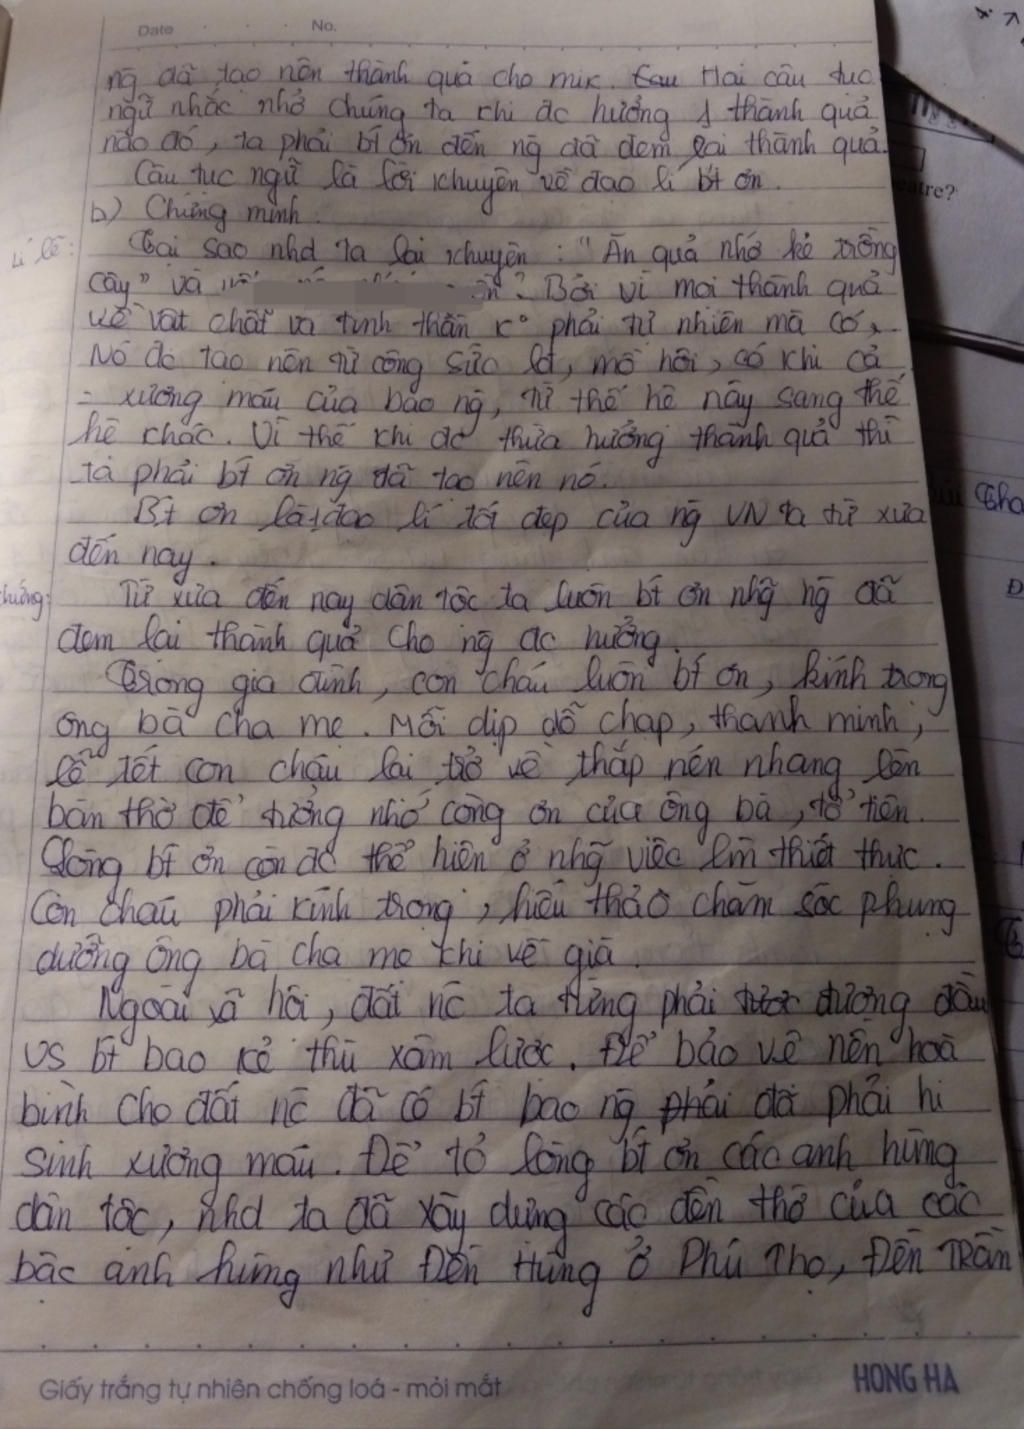 Date No.
ng đã tạo nên thành quả cho mik. Hai câu tục
ngữ nhắc nhở chúng ta khi đc hưởng 1 thành quả
nào đó, ta phải bt ơn đến ng đã đem lại thành quả.
Câu tục ngữ là lời khuyên về đạo lí bt ơn.
b) Chứng minh.
Lí lẽ: Tại sao nhd ta lại khuyên: "Ăn quả nhớ kẻ trồng
cây" và ? Bởi vì mọi thành quả
về vật chất và tinh thần k° phải tự nhiên mà có,
Nó đc tạo nên từ công sức lđ, mồ hôi, có khi cả
xương máu của bao ng, từ thế hệ này sang thế
hệ khác. Vì thế khi đc thừa hưởng thành quả thì
ta phải bt ơn ng đã tạo nên nó.
Bt ơn là 1 đạo lí tốt đẹp của ng VN ta từ xưa
đến nay.
Từ xưa đến nay dân tộc ta luôn bt ơn nhg ng đã
đem lại thành quả cho ng đc hưởng.
Trong gia đình, con cháu luôn bt ơn, kính trọng
ông bà cha mẹ. Mỗi dịp dỗ chạp, thanh minh,
lễ tết con cháu lại trở về thắp nén nhang lên
bàn thờ để tưởng nhớ công ơn của ông bà, tổ tiên.
Lòng bt ơn còn đc thể hiện ở nhg việc lm thiết thực.
Con cháu phải kính trọng, hiếu thảo chăm sóc phụng
dưỡng ông bà cha mẹ khi về già.
Ngoài xã hội, đất nc ta từng phải đương đầu
vs bt bao kẻ thù xâm lược. Để bảo vệ nền hoà
bình cho đất nc đã có bt bao ng phải đã phải hi
sinh xương máu. Để tỏ lòng bt ơn các anh hùng
dân tộc, nhd ta đã xây dựng các đền thờ của các
bậc anh hùng như Đền Hùng ở Phú Thọ, Đền Trần
Giấy trắng tự nhiên chống loá - mỏi mắt
HONG HA